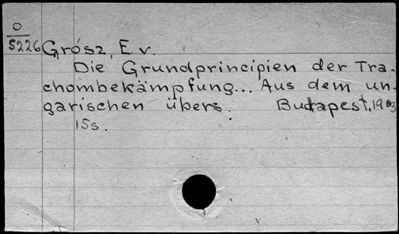 O
5226 Grósz, E. v.
Die Grundprincipien der Tra-
chombekämpfung... Aus dem un-
garischen übers. Budapest, 1903
15s.